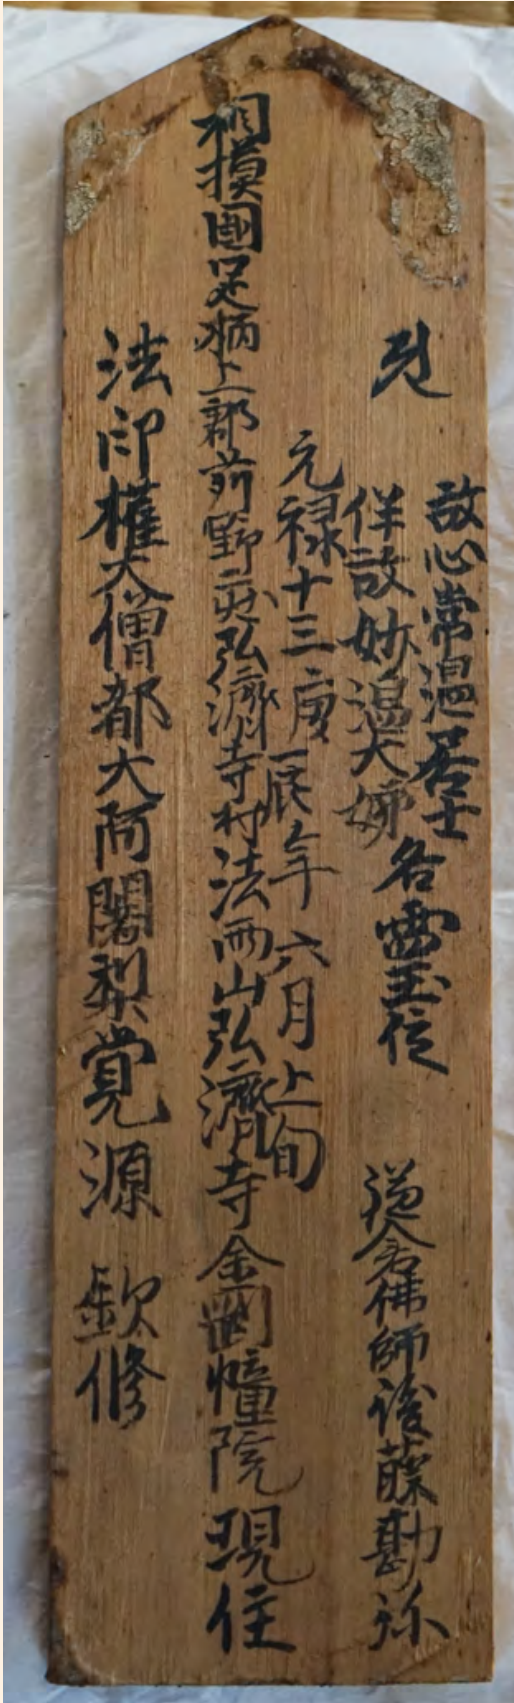 故心常温居士
伴故妙温大姉
各霊玉位
鎌倉佛師後藤勘弥
元禄十三庚辰年六月上旬
相摸國足柄上郡前野庄弘濟寺村法雨山弘濟寺金剛幢院現住
法印權大僧都大阿闍梨覚源 欽修